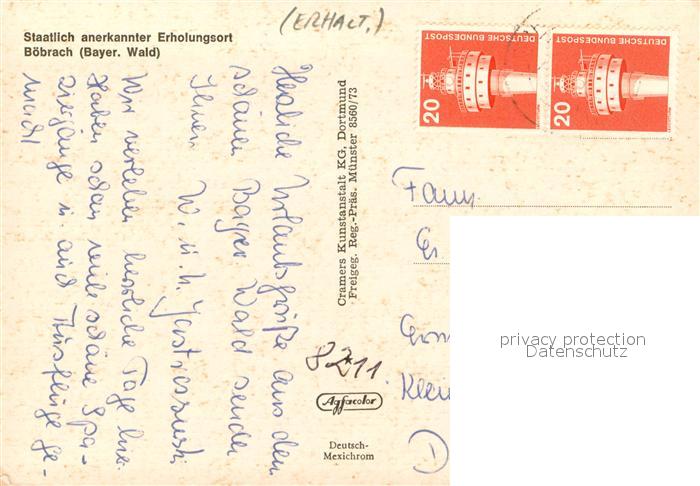 (ERHALT.)
Staatlich anerkannter Erholungsort
Böbrach (Bayer. Wald)
Herzliche Urlaubsgrüße aus dem
schönen Bayer. Wald sendet
Ihnen W. u. H.
Wir verleben herrliche Tage hier.
Haben schon viele schöne Spa-
ziergänge u. auch Ausflüge ge-
macht
Cramers Kunstanstalt KG, Dortmund
Freigeg. Reg.-Präs. Münster 8560/73
8211
Agfacolor
Deutsch-
Mexichrom
DEUTSCHE BUNDESPOST
20
DEUTSCHE BUNDESPOST
20
Fam.
privacy protection
Datenschutz